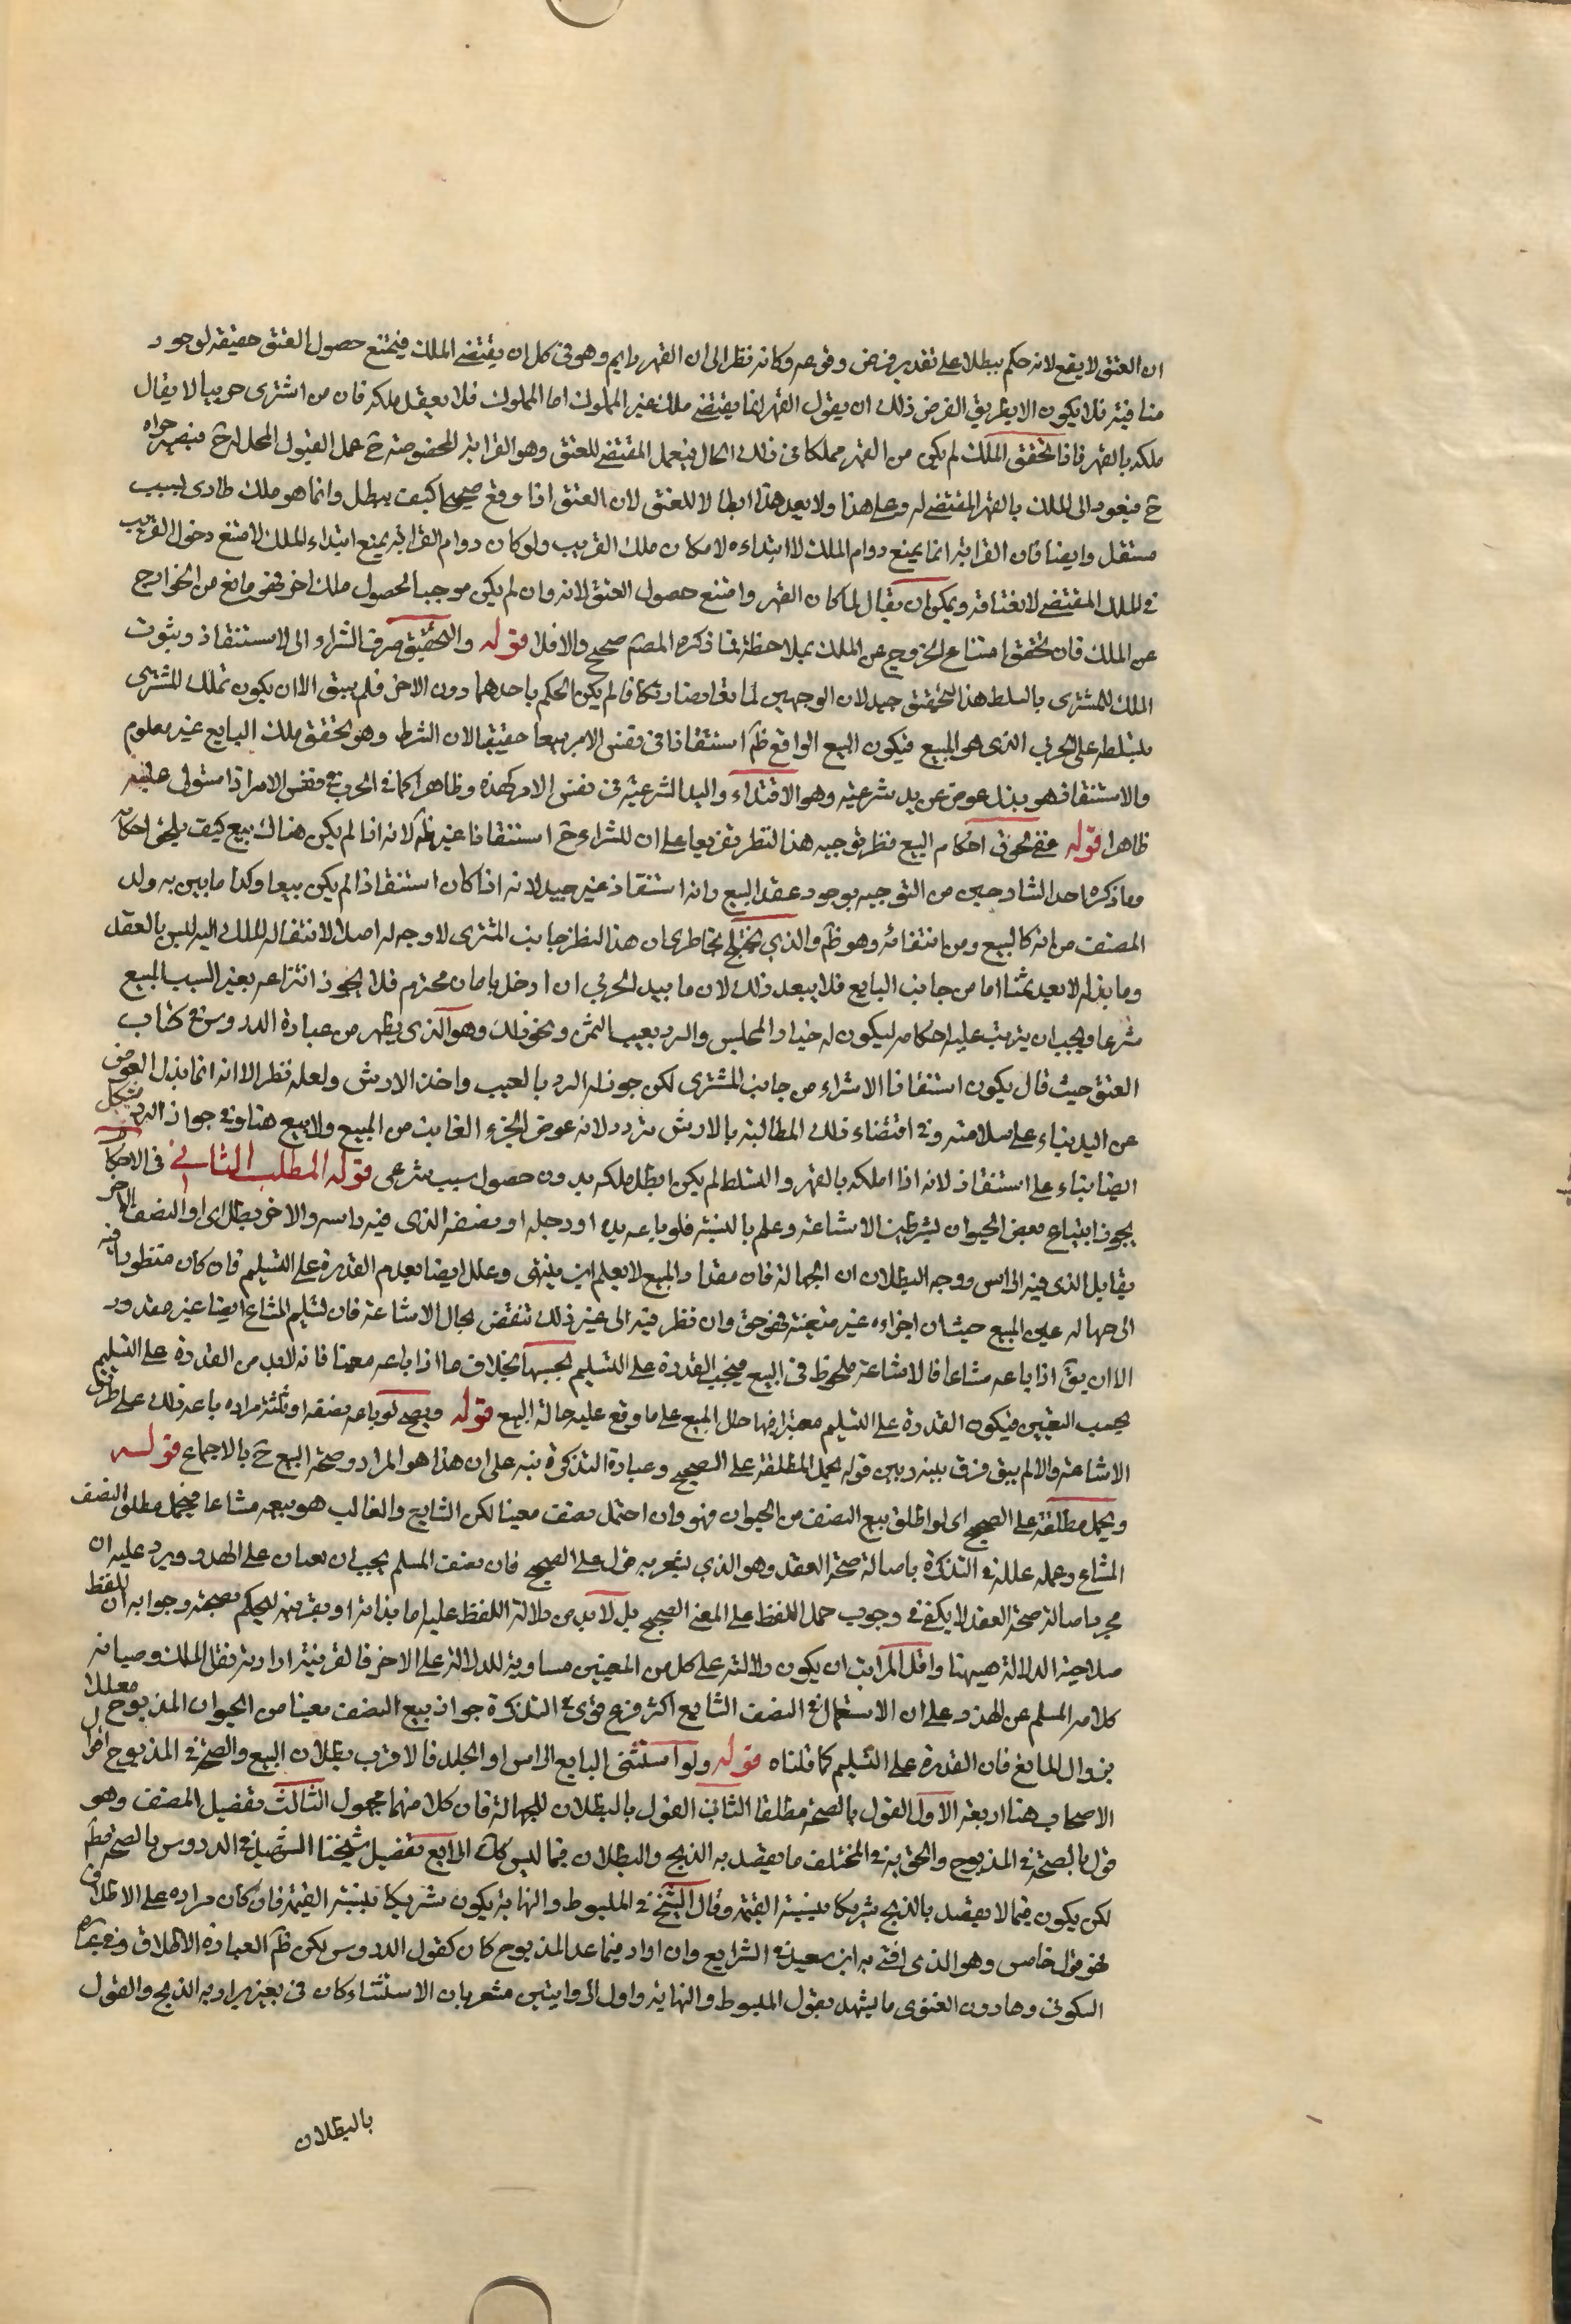 ان العتق لا يقع لانه حكم ببطلا على تقدير فرض وقوعه وكانه نظر الى ان القهر دايم وهو في كل ان يقتضي الملك فيمتنع حصول العتق حقيقة لوجود
منافيه فلا يكون الا بطريق الفرض ذلك ان يقول القهر انما يقتضي ملك غير المملوك اما المملوك فلا يعقل ملكه فان من اشترى حربيا لا يقال
ملكه بالقهر فاذا تحقق الملك لم يكن من القهر مملكا في ذلك الحال فيعمل المقتضي للعتق وهو القرابة المخصوصة ح عمل القبول المحل له ح فيصير حرا
ح فيعود الى الملك بالقهر المقتضي له وعلى هذا ولا يعد هذا ابطالا للعتق لان العتق اذا وقع صحيحا كيف يبطل وانما هو ملك طارى بسبب
مستقل وايضا فان القرابة انما يمنع دوام الملك لا ابتداءه لامكان ملك القريب ولو كان دوام القرابة يمنع ابتداء الملك لامتنع دخول القريب
في الملك المقتضي لانعتاقه ويمكن ان يقال لما كان القهر وامتنع حصول العتق لانه وان لم يكن موجبا لحصول ملك اخر فهو مانع من الخوارج
عن الملك فان تحقق امتناع الخروج عن الملك بملاحظة ما ذكره المصم صحيح والا فلا قوله والتحقيق صرف الشراء الى الاستنقاذ وثبوت
الملك للمشترى بالتسلط هذا التحقيق جيد لان الوجهين لما تعارضا وتكافا لم يكن الحكم باحدهما دون الاخر فلم يبق الا ان يكون تملك المشترى
بتسلطه على الحربي الذى هو المبيع فيكون البيع الواقع ظم استنقاذا في نفس الامر بيعا حقيقيا لان الشرط وهو تحقق ملك البايع غير معلوم
والاستنقاذ هو بذل عوض عن يد شرعية وهو الافتداء واليد الشرعية في نفس الامر كهذه وظاهرا كما في الحربي في نفس الامر اذا استولى عليه
ظاهرا قوله ففي لحوق احكام البيع نظر توجيه هذا النظر تفريعا على ان للشراء ح استنقاذا غير ظم لانه اذا لم يكن هناك بيع كيف يلحق احكامه
وما ذكره احد الشارحين من التوجيه بوجود عقد البيع وانه استنقاذ غير جيد لانه اذا كان استنقاذا لم يكن بيعا وكذا ما بين به ولد
المصنف من انه كالبيع ومن انتفائه وهو ظم والذي يختلج بخاطرى ان هذا النظر جانب المشترى لا وجه له اصلا لانتقاله للملك اليه ليس بالعقد
وما بذله لا يعد ثمنا اما من جانب البايع فلا يبعد ذلك لان ما بيد الحربي ان ادخل بامان محترم فلا يجوز انتزاعه بغير السبب المبيح
شرعا ويجب ان يترتب عليه احكامه ليكون له خيار المجلس والرد بعيب الثمن ونحو ذلك وهو الذى يظهر من عبارة الدروس في كتاب
العتق حيث قال يكون استنقاذا لا شراء من جانب المشترى لكن جوز له الرد بالعيب واخذ الارش ولعله نظر الا انه انما بذل العوض
عن اليد بناء على سلامته وفي اقتضاء ذلك المطالبة بالارش تردد لانه عوض الجزء الغايت من المبيع ولا بيع هنا وفي جواز الرد يشكل
ايضا بناء على استنقاذ لانه اذا املكه بالقهر والتسلط لم يكن ابطل ملكه بدون حصول سبب شرعى قوله المطلب الثاني في الاحكام
يجوز ابتياع بعض الحيوان بشرطين الاشاعة وعلم بالنسبة فلو باعه يده او رجله او نصفه الذى فيه راسه والاخر بطل اى او النصف الاخر
يقابل الذى فيه الراس ووجه البطلان ان الجهالة فان مقدار المبيع لا يعلم اين ينتهى وعلل ايضا بعدم القدرة على التسليم فان كان منظورا فيه
الى جهالة عين المبيع حيث ان اجزاءه غير متعينة فهو حق وان نظر فيه الى غير ذلك تنقض بحال الاشاعة فان تسليم المشاع ايضا غير مقدور
الا ان يق اذا باعه مشاعا فالاشاعة ملحوظ في البيع فيجب القدرة على التسليم بحسبها بخلاف ما اذا باعه معينا فانه لابد من القدرة على التسليم
بحسب التعيين فيكون القدرة على التسليم معتبرا فيها حال المبيع على ما وقع عليه حالة البيع قوله ويصح لو باعه نصفه او ثلثه مراده باعه ذلك على طريق
الاشاعة والا لم يبق فرق بينه وبين قوله يحمل المطلقة على الصحيح وعبارة التذكرة نبه على ان هذا هو المراد وصحة البيع ح بالاجماع قوله
ويحمل مطلقة على الصحيح اى لو اطلق بيع النصف من الحيوان فهو وان احتمل نصف معينا لكن الشايع والغالب هو بيعه مشاعا فيحمل مطلق النصف
المشاع وحمله علله في التذكرة باصالة صحة العقد وهو الذي يشعر به قوله على الصحيح فان تصرف المسلم يجب ان يصان على الهدر ويرد عليه ان
مجرد اصالة صحة العقد لا يكفي في وجوب حمل اللفظ على المعنى الصحيح بل لابد من دلالة اللفظ عليه اما بذاته او بقرينة ليحكم بصحته وجوابه ان اللفظ
صلاحية الدلالة هيهنا واقل المراتب ان يكون دلالته على كل من المعنيين مساوية للدلالة على الاخر فالقرينة ارادته نقل الملك وصيانة
كلام المسلم عن الهذر وعلى ان الاستعمال في النصف الشايع اكثر فرع قوى في التذكرة جواز بيع النصف معينا من الحيوان المذبوح معللا
بزوال المانع فان القدرة على التسليم كما قلناه قوله ولو استثنى البايع الراس او الجلد فالاقرب بطلان البيع والصحة في المذبوح اقوال
الاصحاب هنا اربعة الاول القول بالصحة مطلقا الثاني القول بالبطلان للجهالة فان كلا منهما مجهول الثالث تفضيل المصنف وهو
قول بالصحة في المذبوح والحق به في المختلف ما يقصد به الذبح والبطلان فيما ليس كك الرابع تفضيل شيخنا الشهيد في الدروس بالصحة مطم
لكن يكون فيما لا يقصد بالذبح شريكا بنسبة القيمة وقال الشيخ في المبسوط والنهاية يكون شريكا بنسبة القيمة فان كان مراده على الاطلاق
فهو قول خامس وهو الذى افتى به ابن سعيد في الشرايع وان اراد فيما عدا المذبوح كان كقول الدروس لكن ظم العبارة الاطلاق وفي رواية
السكوني وهارون الغنوى ما يشهد بقول المبسوط والنهاية واول الروايتين مشعر بان الاستثناء كان في بعير يراد به الذبح والقول
بالبطلان